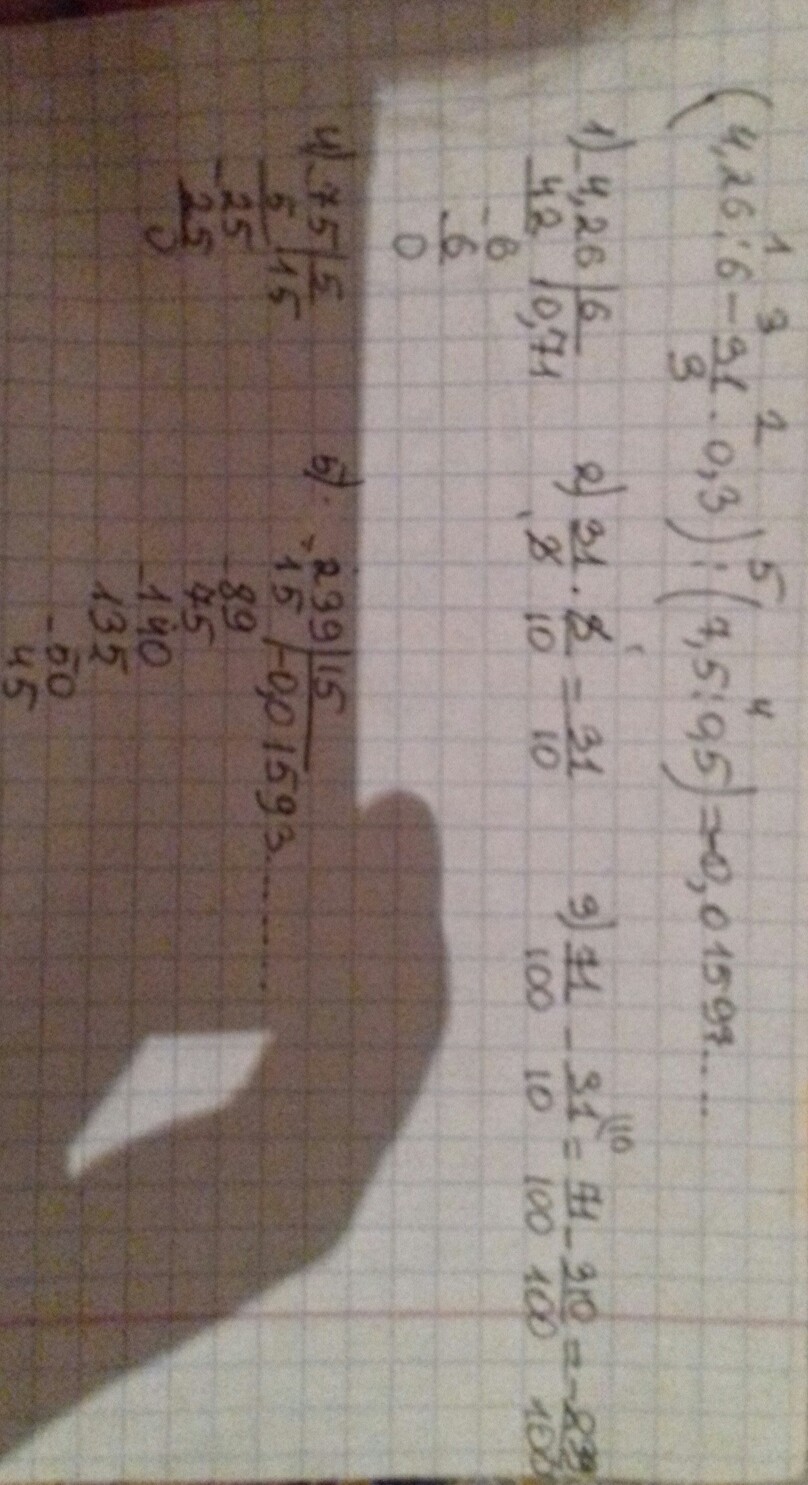 1 3 2 5 4
(4,26:6-31/3·0,3):(7,5:0,5)=-0,01597.....
1) 4,26|6
-42 |0,71
-6
6
0
2) 31/3·3/10=31/10
3) 71/100-31/10=71/100-310/100=-239/100
4) 75|5
-5 |15
-25
25
0
5) 239|15
-15 |-0,01593..........
-89
75
-140
135
-50
45